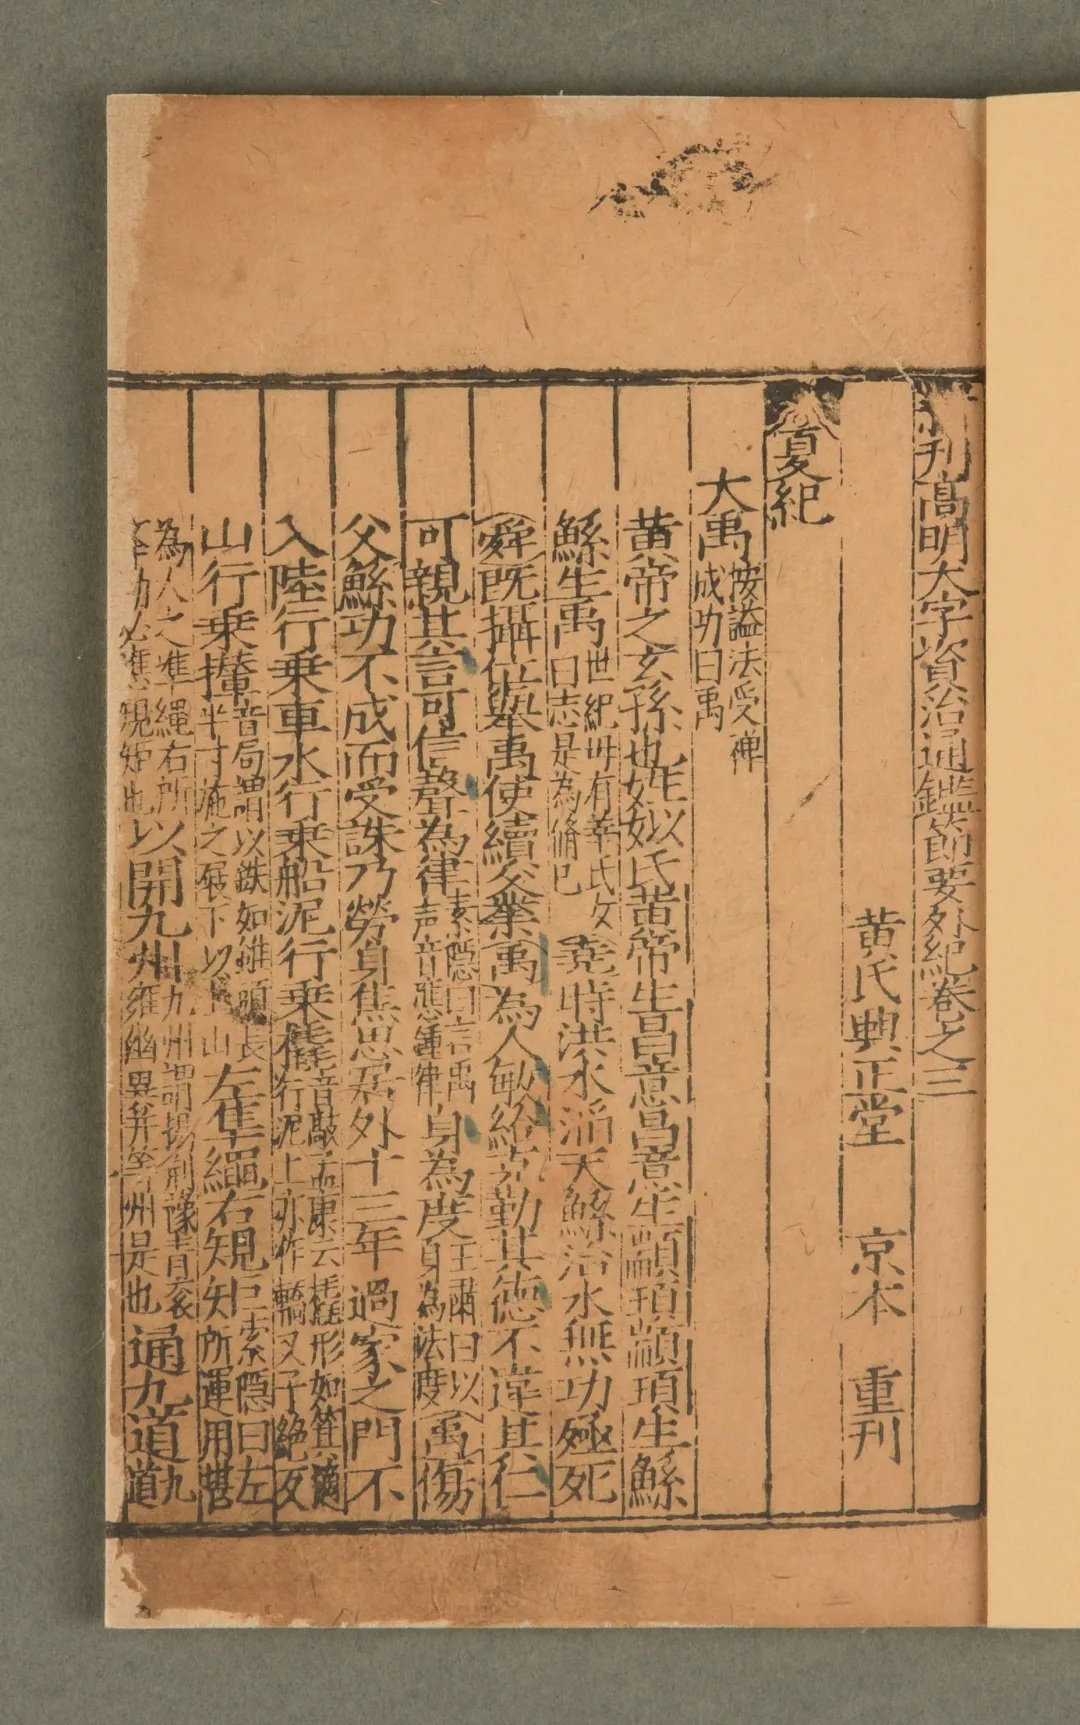 刊高明大字資治通鑑節要外紀卷之三
黄氏興正堂 京本 重刊
夏紀
大禹 按謚法受禪成功曰禹
黄帝之玄孫也姓姒氏黄帝生昌意昌意生顓頊顓頊生鯀
鯀生禹 世紀卅有莘氏女曰志是為脩己 堯時洪水滔天鯀治水無功殛死
舜既攝位舉禹使續父業禹為人敏給克勤其德不違其仁
可親其言可信聲為律 索隱曰言禹声音應鍾律 身為度 王肅曰以身為法度 禹傷
父鯀功不成而受誅乃勞身焦思居外十三年過家之門不
入陸行乗車水行乗船泥行乗橇 音敲孟康云橇形如箕擿行泥上亦作轎又子絶反
山行乗撵 音局謂以鉄如錐頭長半寸施之履下以上山 左准繩右規矩 索隱曰左所運用堪
為人之準繩右所舉動必應規矩也 以開九州 九州謂揚荊豫青兗雍幽冀并等州是也 通九道 九道